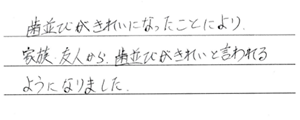 歯並びがきれいになったことにより、
家族、友人から、歯並びがきれいと言われる
ようになりました。